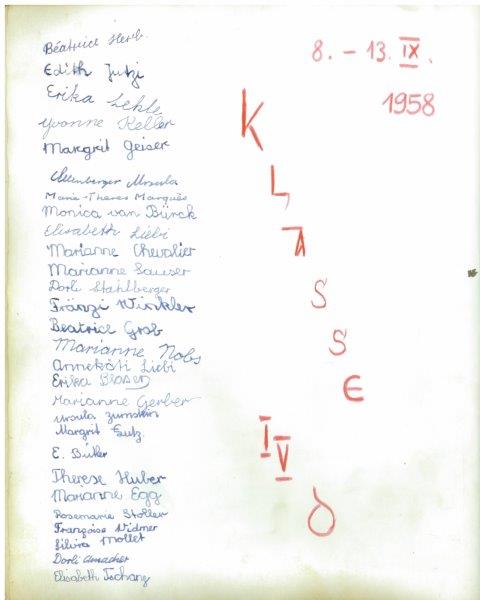 Béatrice Herb.
Edith Jutzi
Erika Lehle
Yvonne Keller
Margrit Geiser
Ursula
Marie-Theres Marquès
Monica van Bürck
Elisabeth Liebi
Marianne Chevalier
Marianne Sauser
Dorli Stahlberger
Fränzi Winkler
Beatrice Grob
Marianne Nobs
Annekäti Liebi
Erika Blaser
Marianne Gerber
Ursula Zumstein
Margrit Lutz.
E. Büker
Therese Huber
Marianne Egg
Rosemarie Stoller
Françoise Widmer
Silvia Mollet
Dorli Amacher
Elisabeth Tschanz
8. – 13. IX.
1958
KLASSE
IV